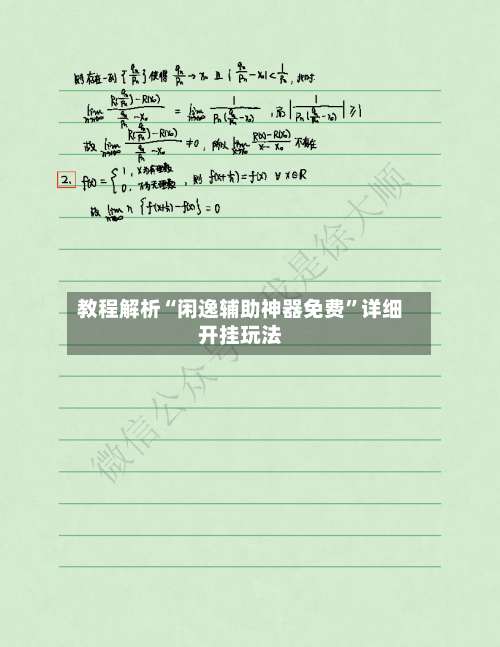 则存在一列 {qₙ/pₙ} 使得 qₙ/pₙ → x₀ 且 |qₙ/pₙ - x₀| < 1/pₙ, 此时
lim n→∞ (R(qₙ/pₙ) - R(x₀))/(qₙ/pₙ - x₀) = lim n→∞ 1/(pₙ(qₙ/pₙ - x₀)), 而 |1/(pₙ(qₙ/pₙ - x₀))| ≥ 1
故 lim n→∞ (R(qₙ/pₙ) - R(x₀))/(qₙ/pₙ - x₀) ≠ 0, 所以 lim x→x₀ (R(x) - R(x₀))/(x - x₀) 不存在
2. f(x) = { 1, x为有理数
0, x为无理数, 则 f(x+1/n) = f(x) ∀ x∈R
故 lim n→∞ n {f(x+1/n) - f(x)} = 0
教程解析“闲逸辅助神器免费”详细
开挂玩法
微信公众号 我是徐大顺